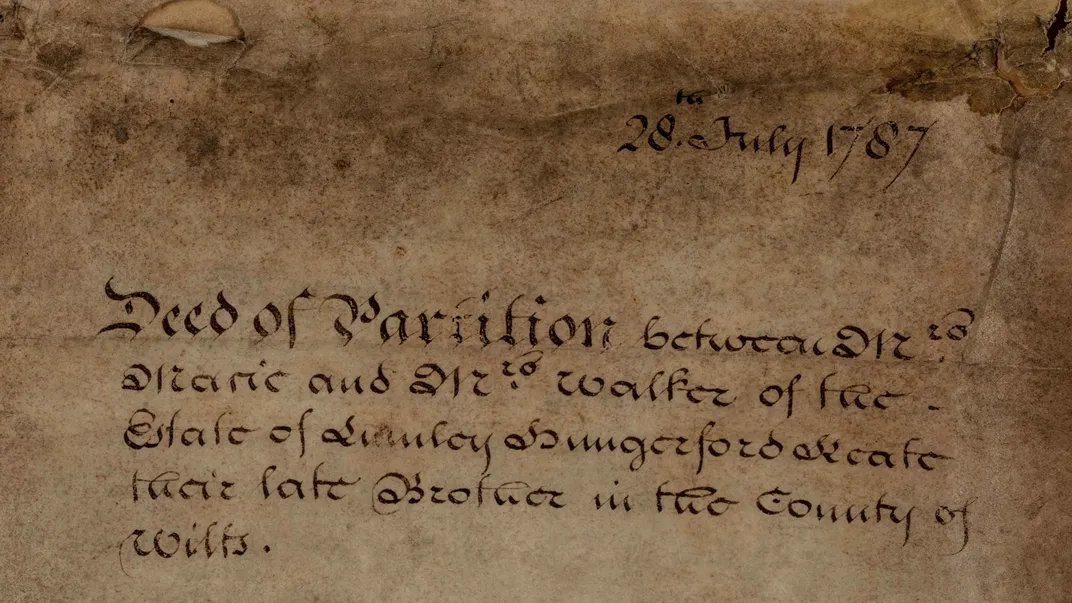 28.th July 1787
Deed of Partition between Mrs.
Marie and Mrs. Walker of the
Estate of Lumley Hungerford Keate
their late Brother in the County of
Wilts.